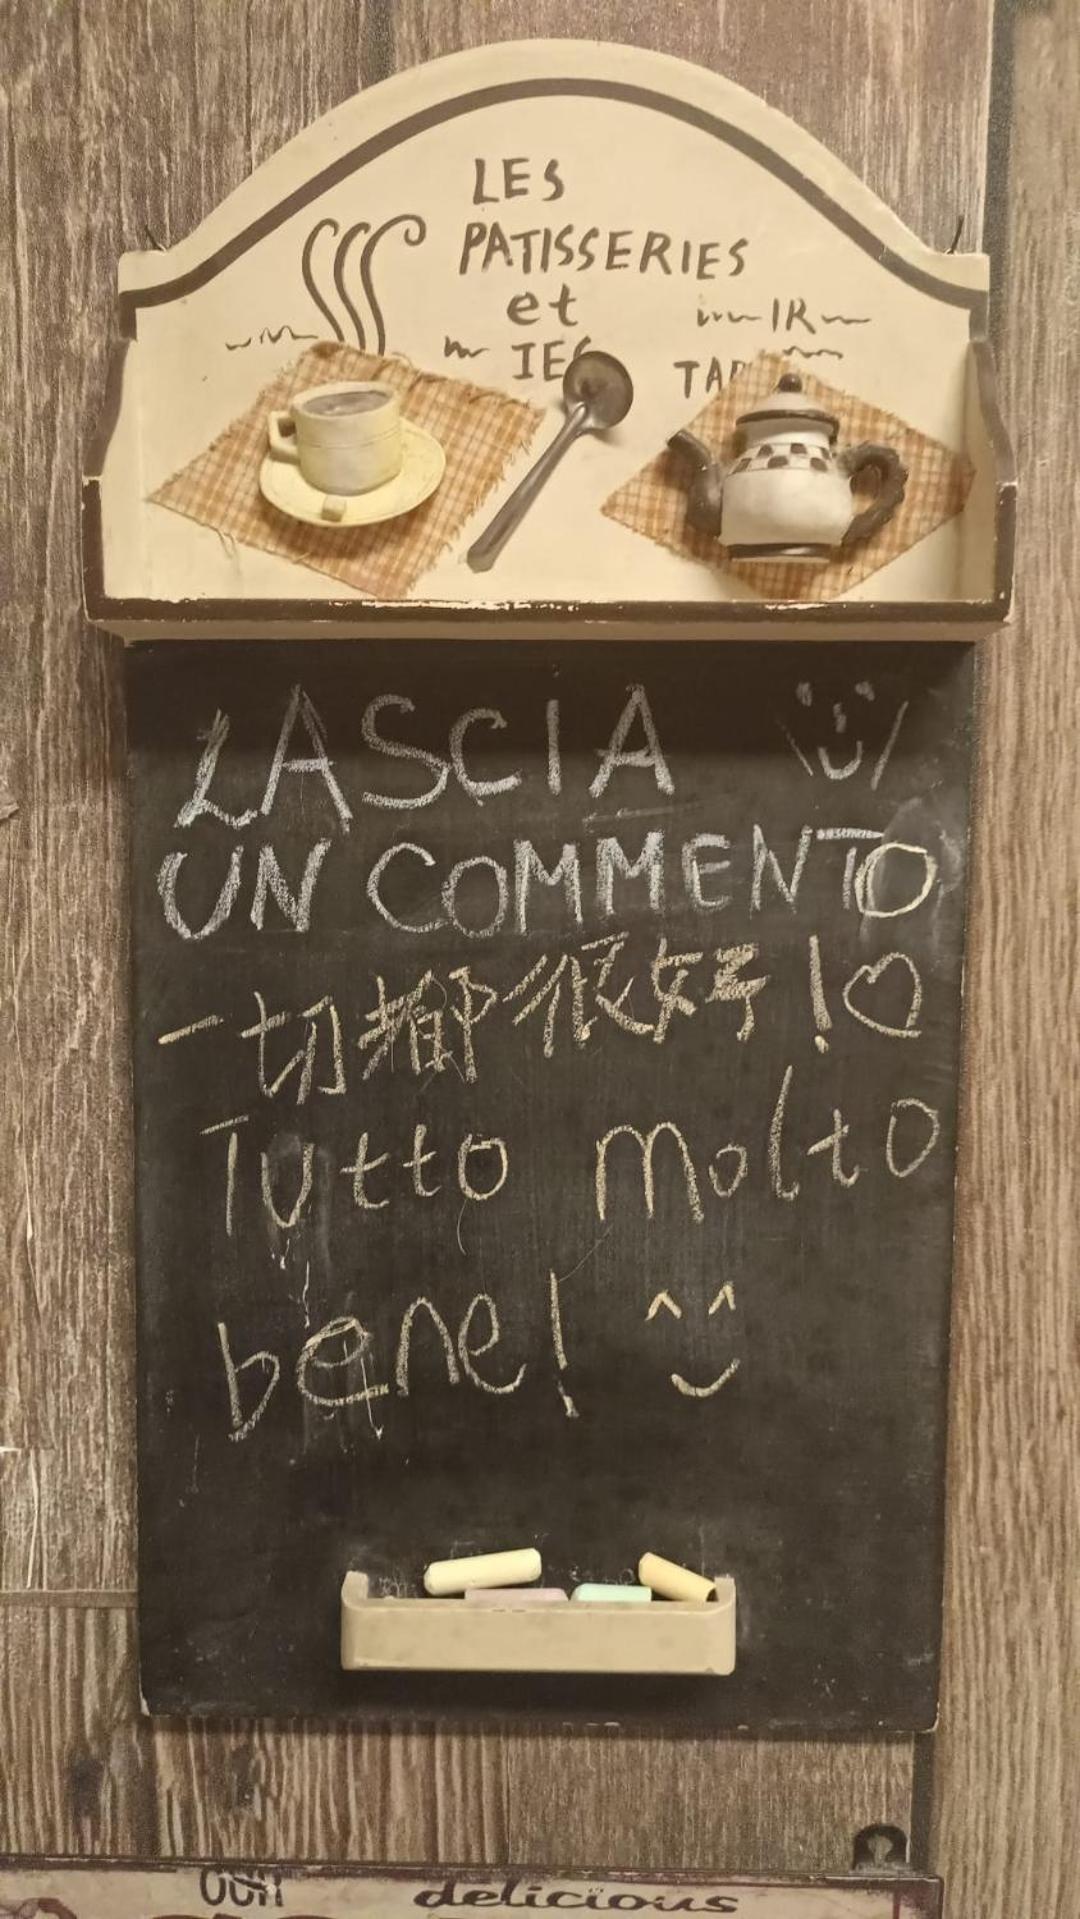 LES
PATISSERIES
et
IR
IES
LASCIA
UN COMMENTO
一切都很好！♡
Tutto molto
bene!
delicious